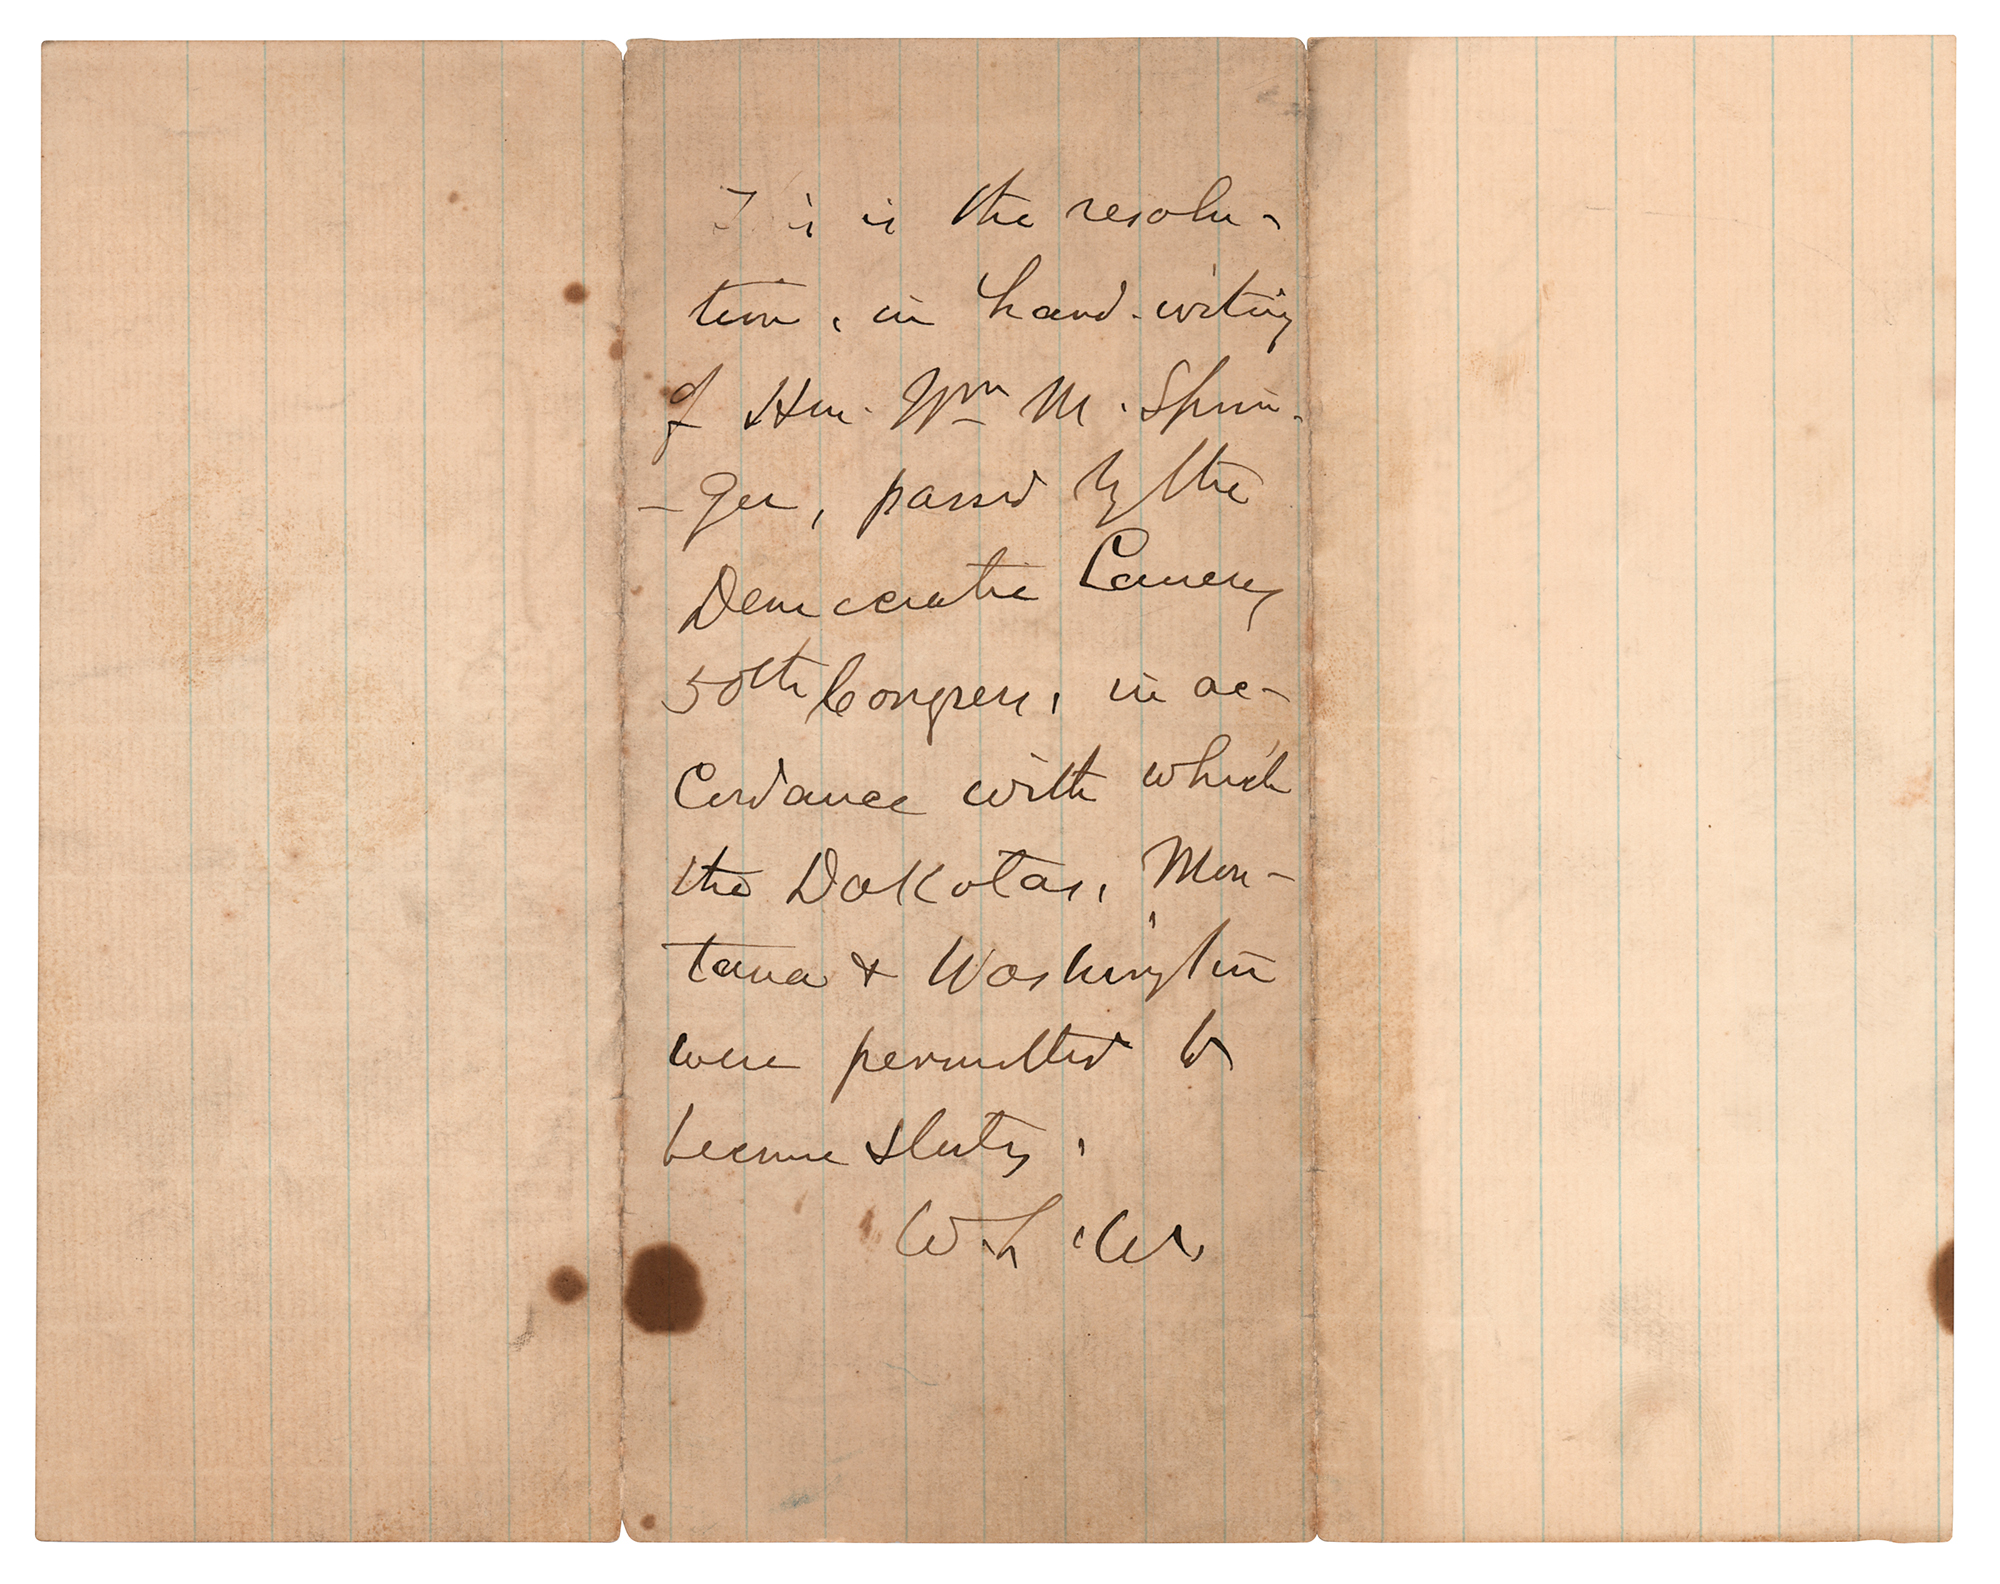 This is the resolu-
tion, in hand-writing
of Hon. Wm M. Sprin-
-ger, passed by the
Democratic Caucus,
50th Congress, in ac-
cordance with which
the Dakotas, Mon-
tana & Washington
were permitted to
become States.
W. L. W.